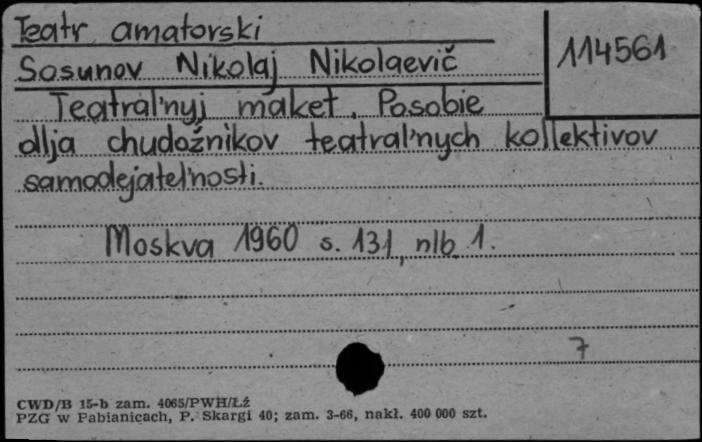 Teatr amatorski
114561
Sosunov Nikolaj Nikolaevič
Teatral'nyj maket. Posobie
dlja chudožnikov teatral'nych kollektivov
samodejatel'nosti.
Moskva 1960 s. 131, nlb. 1.
7
CWD/B 15-b zam. 4065/PWH/Łż
PZG w Pabianicach, P. Skargi 40; zam. 3-66, nakł. 400 000 szt.